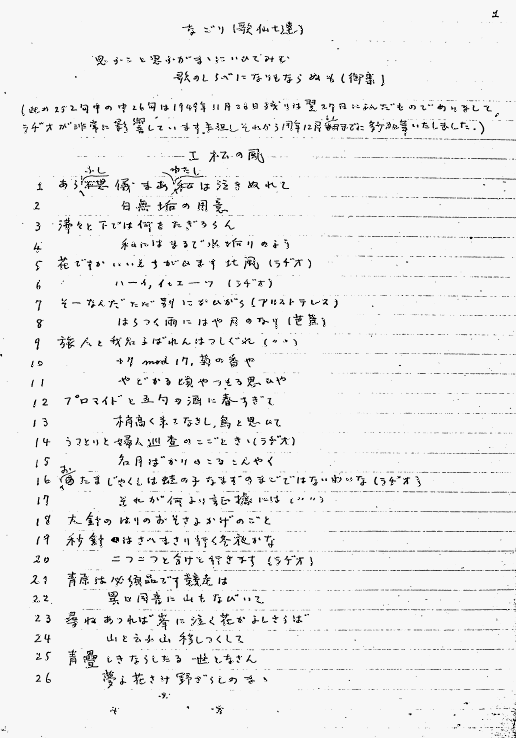 1
なごり(歌仙七連)
思ふこと思ふがまゝにいひてみむ
歌のしらべになりもならぬも(御集)
(此の252句中の中26句は1949年11月26日残りは翌27日によんだものでありまして、
ラヂオが非常に影響しています.但しそれから1月12月
I 松の風
ふし わたし
1 あら 儀 まあ私は泣きぬれて
2 白無垢の用意
3 沸々と下では何をたぎるらん
4 私にはまるで氷垢りのよう
5 花ですかいいえちがひます北風(ラヂオ)
6 ハーイ, イエーツ (ラヂオ)
7 そーなんだただ別に(アリストテレス)
8 はらつく雨にはや月のなり(芭蕉)
9 旅人と我名よばれんはつしぐれ(〃)
10 mod 17, 菊の香や
11 やどかる頃やつもる思ひや
12 ブロマイドと五勺の酒に春すぎて
13 梢高く来てなきし鳥と思ひて
14 うつとりと婦人巡査のこごときゝ(ラヂオ)
15 名月ばかりのこるこんやく
16 おたまじやくしは蛙の子なまずのまごではないわいな(ラヂオ)
17 それが何より証拠には(〃)
18 大針のはりのおそさよかげのごと
19 秒針はさへまさり行く冬夜かな
20 二つ二つと分けと行きます(ラヂオ)
21 青原は必須品です競走は
22 異口同音に山もなびいて
23 尋ねあつれば峯に泣く花かよしさらば
24 山と云ふ山移しつくして
25 青疊しきならしたる 世となさん
26 夢よ花さけ野ざらしのまゝ